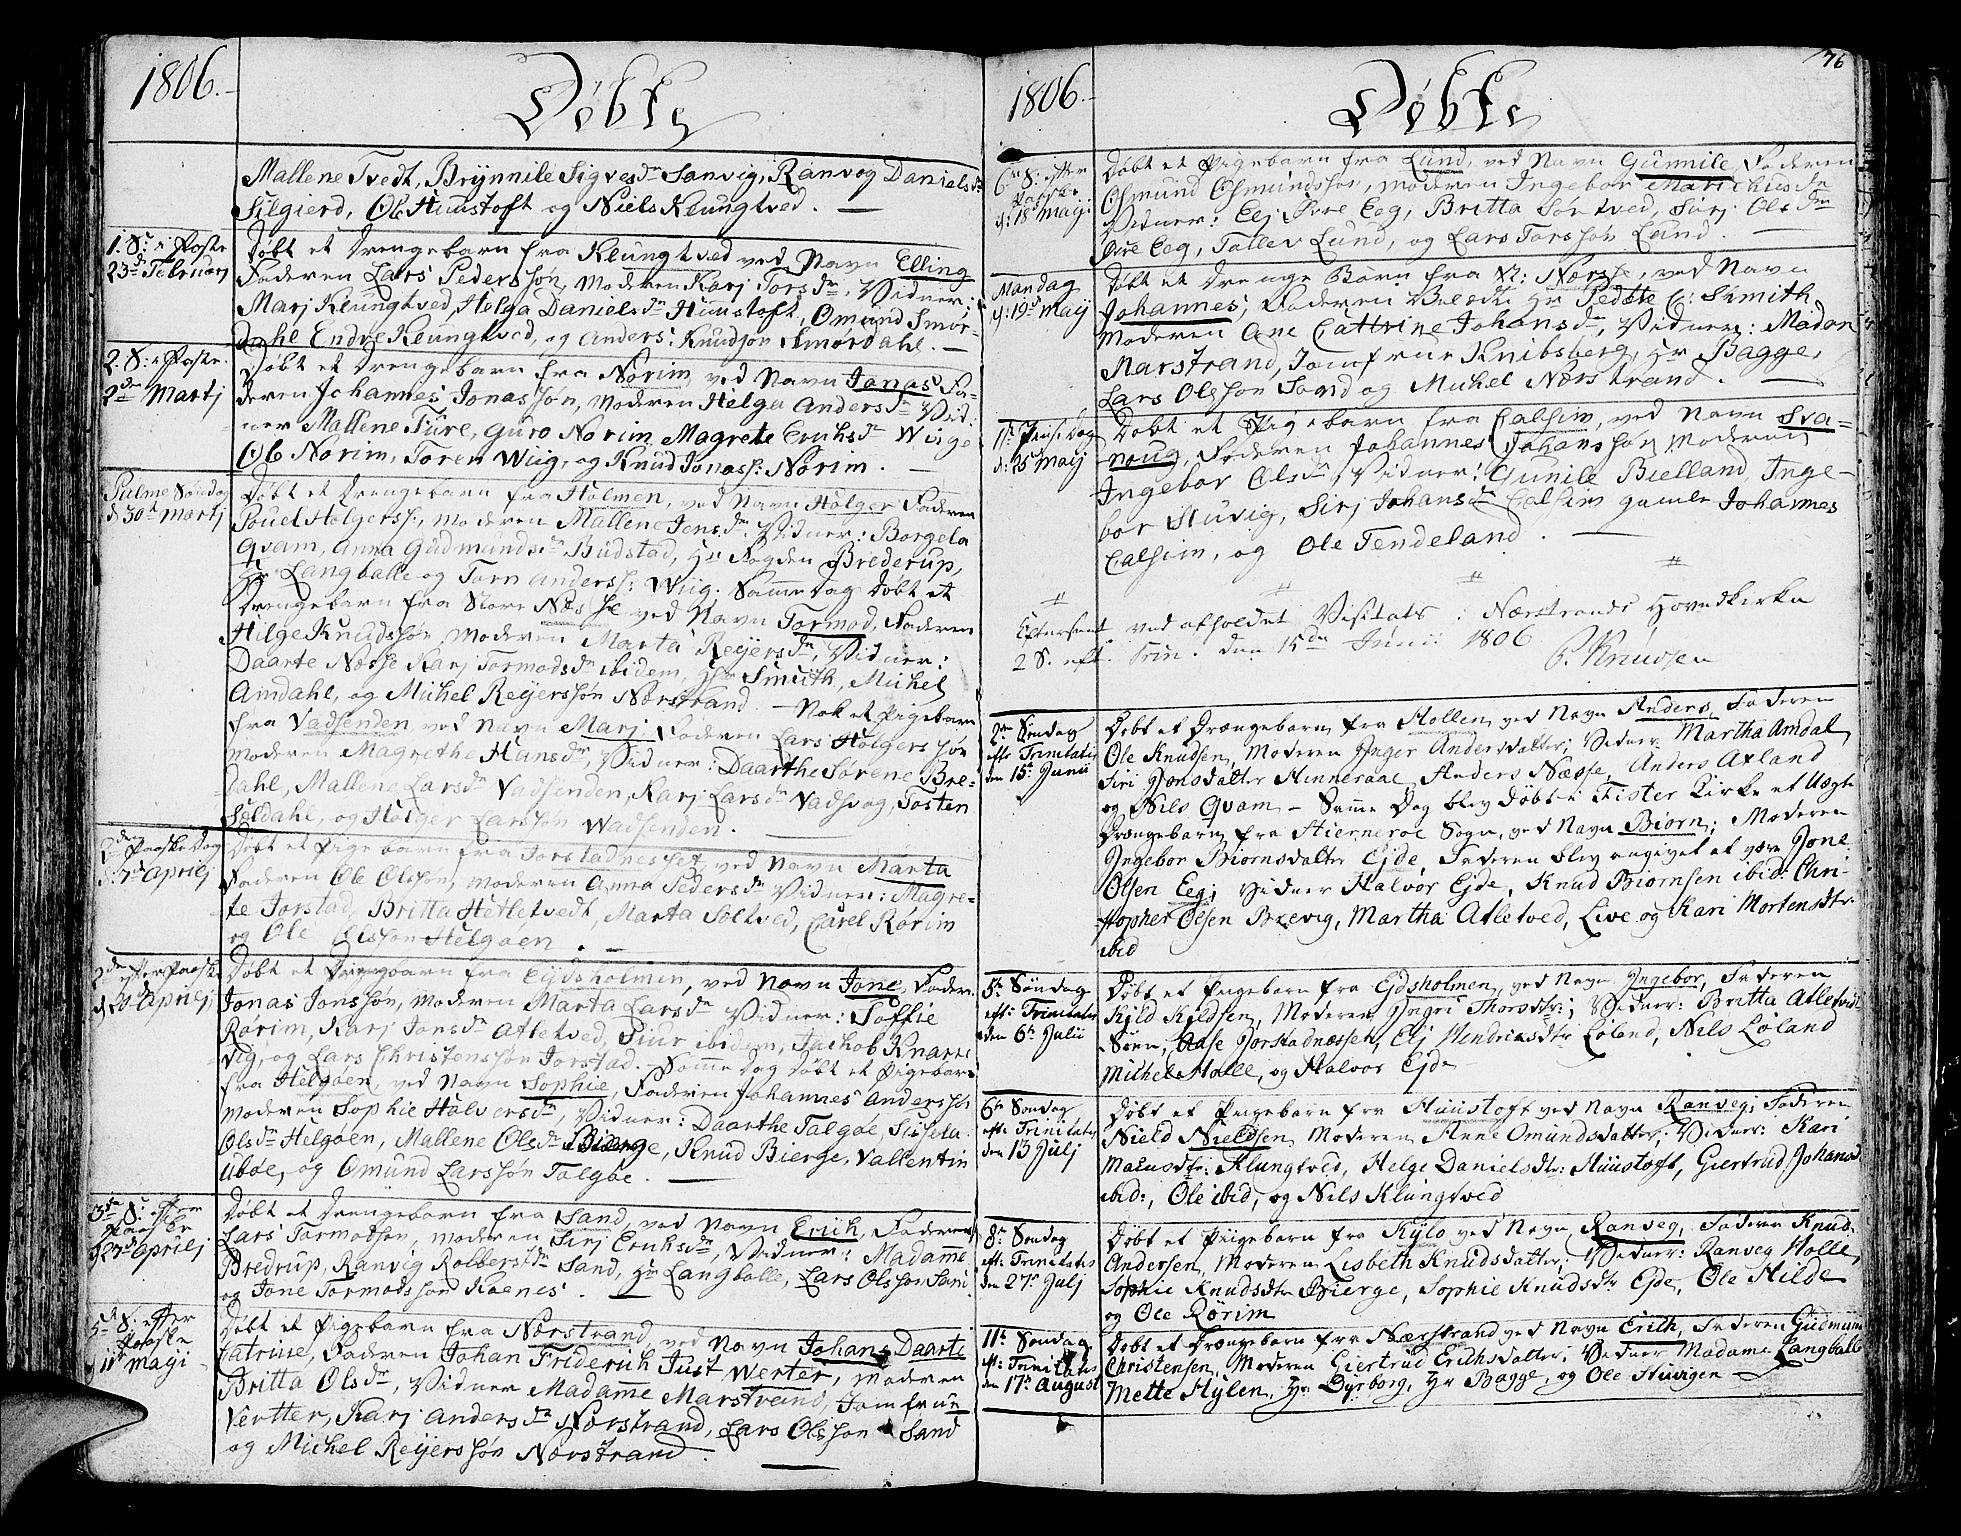 1806.
Døbte
Mallene Tvedt, Brynnile Sigvesdr Sanvig, Ranvog Danielsdr
Silgierd, Ole Huustoft og Niels Klungtved.
1. S: i Faste
23d Februarj
Døbt et Drengebarn fra Klungtved ved Navn Elling
Faderen Lars Pederssøn, Moderen Karj Torsdr, Vidner:
Marj Klungtved, Helga Danielsdr Huustoft, Omund Smør-
dahl Endre Klungtved, og Anders Knudson Smørdahl.
2. S. i Faste
2den Martj
Døbt et Drengebarn fra Norim, ved Navn Jonas Fa-
deren Johannes Jonassøn, Moderen Helga Andersdr Vid-
ner Mallene Ture, Guro Norim Magrete Erichsdr Wiige
Ole Norim, Toren Wiig, og Knud Jonass: Norim.
Palme Søndag
d 30d Martj
Døbt et Drengebarn fra Holmen, ved Navn Holger Faderen
Pouel Holgerss:, Moderen Mallene Jensdr, Vidner: Borgela
Qvam, Anna Gudmundsdr Budstad, Hr Fogden Brederup,
Hr Langballe og Torn Anderss: Wiig. Samme Dag Døbt et
Drengebarn fra Store Næsse ved Navn Tormod, Faderen
Hilge Knudssøn, Moderen Marta Reijersdr, Vidner:
Daarte Næsse Karj Tormodsdr ibidem, Hr Smith, Michel
Amdahl, og Michel Reijerssøn Norstrand. Nok et Pigebarn
fra Vadsenden ved Navn Marj Faderen Lars Holgerssøn
Moderen Magrethe Hansdr, Vidner: Daarthe Sørene Bre-
Dahl, Mallene Larsdr Vadsenden, Karj Larsdr Vadsvog, Tosten
Seldahl, og Holger Larssøn Wadsenden.
2den Paaske Dag
d. 7d Aprilj
Døbt et Pige barn fra Jorstadnesset, ved Navn Marta
Faderen Ole Olssøn, Moderen Anna Pedersdr Vidner: Magre-
te Jorstad, Britta Hetletvedt, Marta Soltved, Carel Rorim
og Ole Olsson Helgøen.
2de efter Paaske
d 20 Aprilj
Døbt et Drengebarn fra Eijdsholmen, ved Navn Jone, Fader:
Jonas Jonssøn, Moderen Marta Larsdr Vidner: Soffie
Rørim, Karj Jonsdr Atletved, Siur ibidem, Jachob Knarre
vig, og Lars Christenssøn Jorstad. Samme Dag Døbt et Pigebarn
fra Helgøen, ved Navn Sophie, Faderen Johannes Anderssøn
Moderen Sophie Halversdr, Vidner: Daarthe Talgøe, Sissela
Olsdr Helgøen, Mallene Olsdr Bierge, Knud Bierge, Vallentin
Ubøe, og Omund Larssøn Talgøe.
3de S: efter
Paaske
d 27d Aprilj
Døbt et Drengebarn fra Sand, ved Navn Erich, Faderen
Lars Tormodsøn, Moderen Sirj Erichsdr, Vidner: Madamme
Bredrup, Ranvig Rolbersdr Sand, Hr Langballe, Lars Olssøn Sand
og Jone Tormodssøn Høenes.
5te S: efter
Paaske
d 11te Magi
Døbt et Pigebarn fra Norstrand, ved Navn Johana Daarte
Catrine, Faderen Johan Friderich Just Werter, Moderen
Britta Olsdr, Vidner Madamme Marstrand, Jomfrue
Vertter, Karj Andersdr Norstrand, Lars Olsson Sand
og Michel Reijerssøn Norstrand.
76
1806.
Døbte
6te S. efter
Paaske
d: 18de Maij
Døbt et Pigebarn fra Lund, ved Navn Gunnile Faderen
Osmund Osmundssøn, Moderen Ingebor Marichusdr
Vidner: Elj Øvre Eeg, Britta Sørtved, Sirj Olsdr
Øvre Eeg, Tallev Lund, og Lars Torssøn Lund.
Mandag
d: 19d Maij
Døbt et Drenge Barn fra N: Næsse, ved Navn
Johannes, Faderen Hr Pedste C: Smith
Moderen Ane Cattrine Johansdr, Vidner: Madan
Marstrand, Jomfrue Knibsberg, Hr Bagge,
Lars Olsson Sand og Michel Nørstrand.
1te Pintse Dag
d: 25 Maij
Døbt et Pigebarn fra Calsim, ved Navn Sva-
noug, Faderen Johannes Johanssøn Moderen
Ingebor Olsdr, Vidner: Gunile Bielland Inge-
bor Stuvig, Sirj Johansdr Calsim gamle Johannes
Calsim, og Ole Tendeland.
Efterseet ved afholdet Visitats i Nærstrands Hovedkirke
2 S. eft. Trin. den 15de Junii 1806 P. Knudsen
2den Søndag
eftr Trinitatis
den 15de Junii
Døbt et Drængebarn fra Hollen ved Navn Anders, Faderen
Ole Knudsen, Moderen Inger Andersdatter; Vidner Martha Amdal
Siri Jonsdatter Hinneraae Anders Næsse, Anders Axland
og Nils Qvam – Samme Dag blev Døbt i Fister Kirke et Uægte
Drængebarn fra Hierneroe Sogn, ved Navn Biørn; Moderen
Ingebor Biørnsdatter Ejde, Faderen blev angivet at være Jone
Olsen Eeg; Vidner Halvor Ejde, Knud Biørnsen ibid: Chri-
stopher Olsen Brevig, Martha Atletved, Live og Kari Mortensdtr
ibid
5te Søndag
eft: Trinitatis
den 6te Julii
Døbt et Pigebarn fra Ejdsholmen, ved Navn Ingebor, Faderen
Kield Kieldsen, Moderen Ingri Thorsdtr; Vidner: Britta Atletved
Søen, Aase Jorstadnæsset, Elj Hendricsdtr Løland, Nils Løland
Michel Holle, og Halvor Ejde
6te Søndag
eft: Trinitatis
den 13 Julj
Døbt et Pigebarn fra Huustoft ved Navn Ranveg; Faderen
Nield Nieldsen Moderen Anne Omundsdatter; Vidner: Kari
Madsdtr: Klungtved, Helge Danielsdtr: Huustoft, Giertrud Johansd
ibid:, Ole ibid, og Nils Klungtved
8de Søndag
eft: Trinitatis
den 27de Julj
Døbt et Piigebarn fra Kylo ved Navn Ranveg, Faderen Knud
Andersen, Moderen Lisbeth Knudsdatter; Vidner: Ranveg Holle,
Sophie Knudsdtr Bierge, Sophie Knudsdtr Ejde, Ole Hilde
og Ole Rørim
11te Søndag
eft: Trinitatis
den 17de August
Døbt et Drængebarn fra Nærstrand ved Navn Erith, Faderen Gudmun
Christensen, Moderen Giertrud Erichsdatter; Vidner Madame Langballe
Mette Hylen, Hr Dyrborg, Hr Bagge, og Ole Huvigen